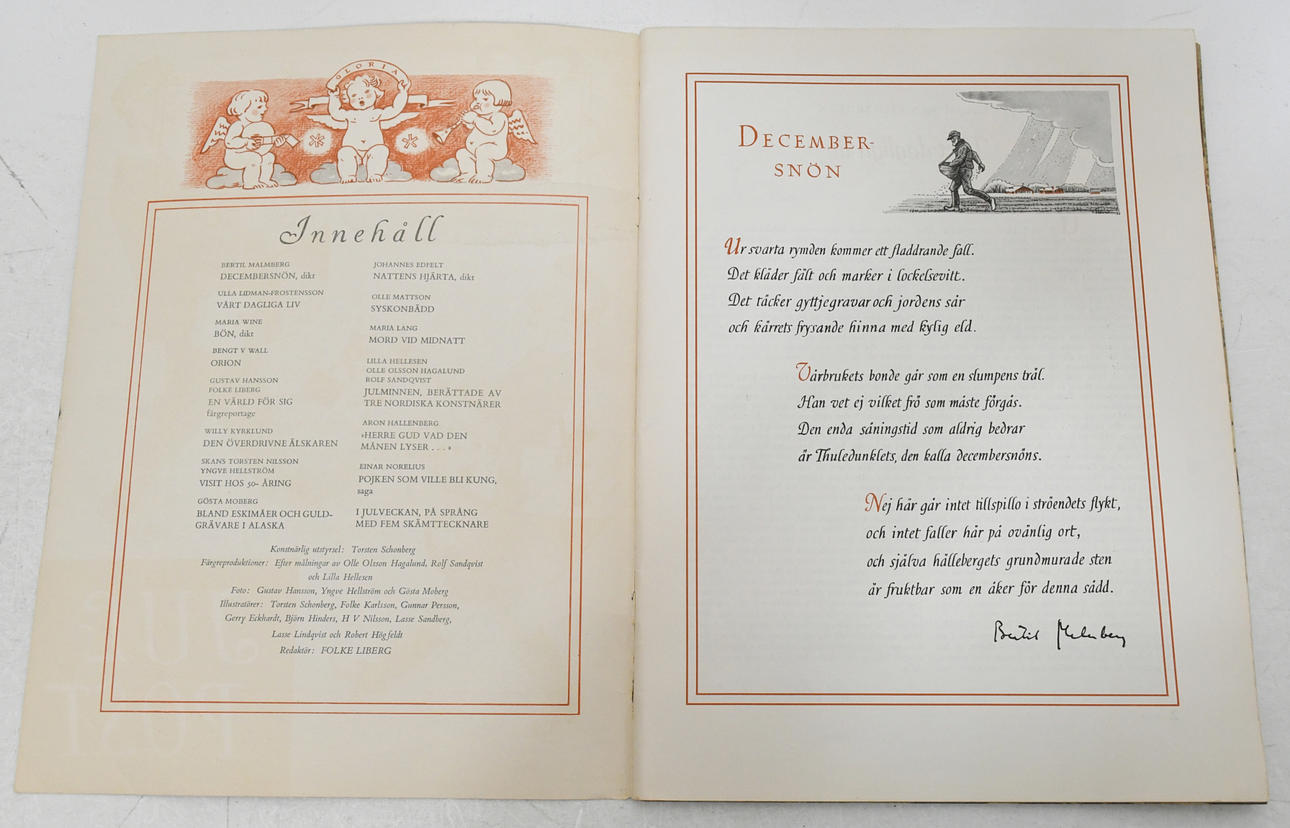 GLORIA
Innehåll
BERTIL MALMBERG
DECEMBERSNÖN, dikt
ULLA LIDMAN-FROSTENSSON
VÅRT DAGLIGA LIV
MARIA WINE
BÖN, dikt
BENGT V WALL
ORION
GUSTAV HANSSON
FOLKE LIBERG
EN VÄRLD FÖR SIG
färgreportage
WILLY KYRKLUND
DEN ÖVERDRIVNE ÄLSKAREN
SKANS TORSTEN NILSSON
YNGVE HELLSTRÖM
VISIT HOS 50-ÅRING
GÖSTA MOBERG
BLAND ESKIMÅER OCH GULD-
GRÄVARE I ALASKA
JOHANNES EDFELT
NATTENS HJÄRTA, dikt
OLLE MATTSON
SYSKONBÄDD
MARIA LANG
MORD VID MIDNATT
LILLA HELLESEN
OLLE OLSSON HAGALUND
ROLF SANDQVIST
JULMINNEN, BERÄTTADE AV
TRE NORDISKA KONSTNÄRER
ARON HALLENBERG
»HERRE GUD VAD DEN
MÅNEN LYSER . . .»
EINAR NORELIUS
POJKEN SOM VILLE BLI KUNG,
saga
I JULVECKAN, PÅ SPRÅNG
MED FEM SKÄMTTECKNARE
Konstnärlig utstyrsel: Torsten Schonberg
Färgreproduktioner: Efter målningar av Olle Olsson Hagalund, Rolf Sandqvist
och Lilla Hellesen
Foto: Gustav Hansson, Yngve Hellström och Gösta Moberg
Illustratörer: Torsten Schonberg, Folke Karlsson, Gunnar Persson,
Gerry Eckhardt, Björn Hinders, H V Nilsson, Lasse Sandberg,
Lasse Lindqvist och Robert Högfeldt
Redaktör: FOLKE LIBERG
JUL
POST
DECEMBER-
SNÖN
Ur svarta rymden kommer ett fladdrande fall.
Det kläder fält och marker i lockelsevitt.
Det täcker gyttjegravar och jordens sår
och kärrets frysande hinna med kylig eld.
Vårbrukets bonde går som en slumpens träl.
Han vet ej vilket frö som måste förgås.
Den enda såningstid som aldrig bedrar
är Thuledunklets, den kalla decembersnöns.
Nej här går intet tillspillo i ströendets flykt,
och intet faller här på ovänlig ort,
och själva hällebergets grundmurade sten
är fruktbar som en åker för denna sådd.
Bertil Malmberg